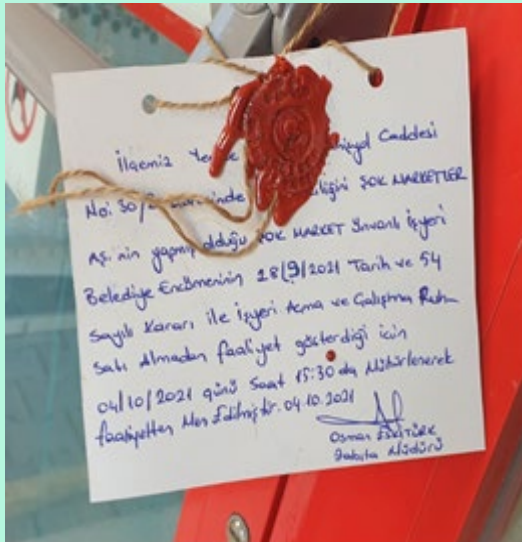 İlçemiz Caddesi
No: 30/ ŞOK MARKETLER
AŞ.'nin yapmış olduğu ŞOK MARKET Ünvanlı işyeri
Belediye Encümeninin 28/9/2021 Tarih ve 54
Sayılı Kararı ile İşyeri Açma ve Çalışma Ruh-
Satı Almadan faaliyet gösterdiği için
04/10/2021 günü Saat 15:30 da Mühürlenerek
faaliyetten Men Edilmiştir. 04.10.2021
Osman ESKİTÜRK
Zabıta Müdürü